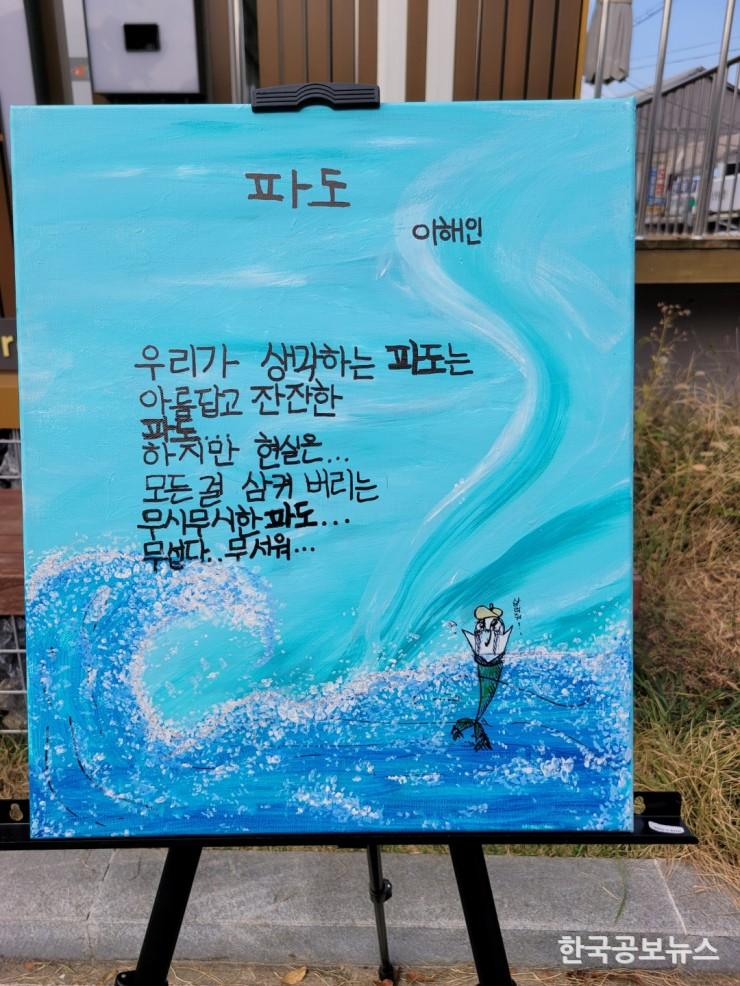 파도
이해인
우리가 생각하는 파도는
아름답고 잔잔한
파도...
하지만 현실은...
모든걸 삼켜 버리는
무시무시한 파도...
무섭다.. 무서워...
한국공보뉴스